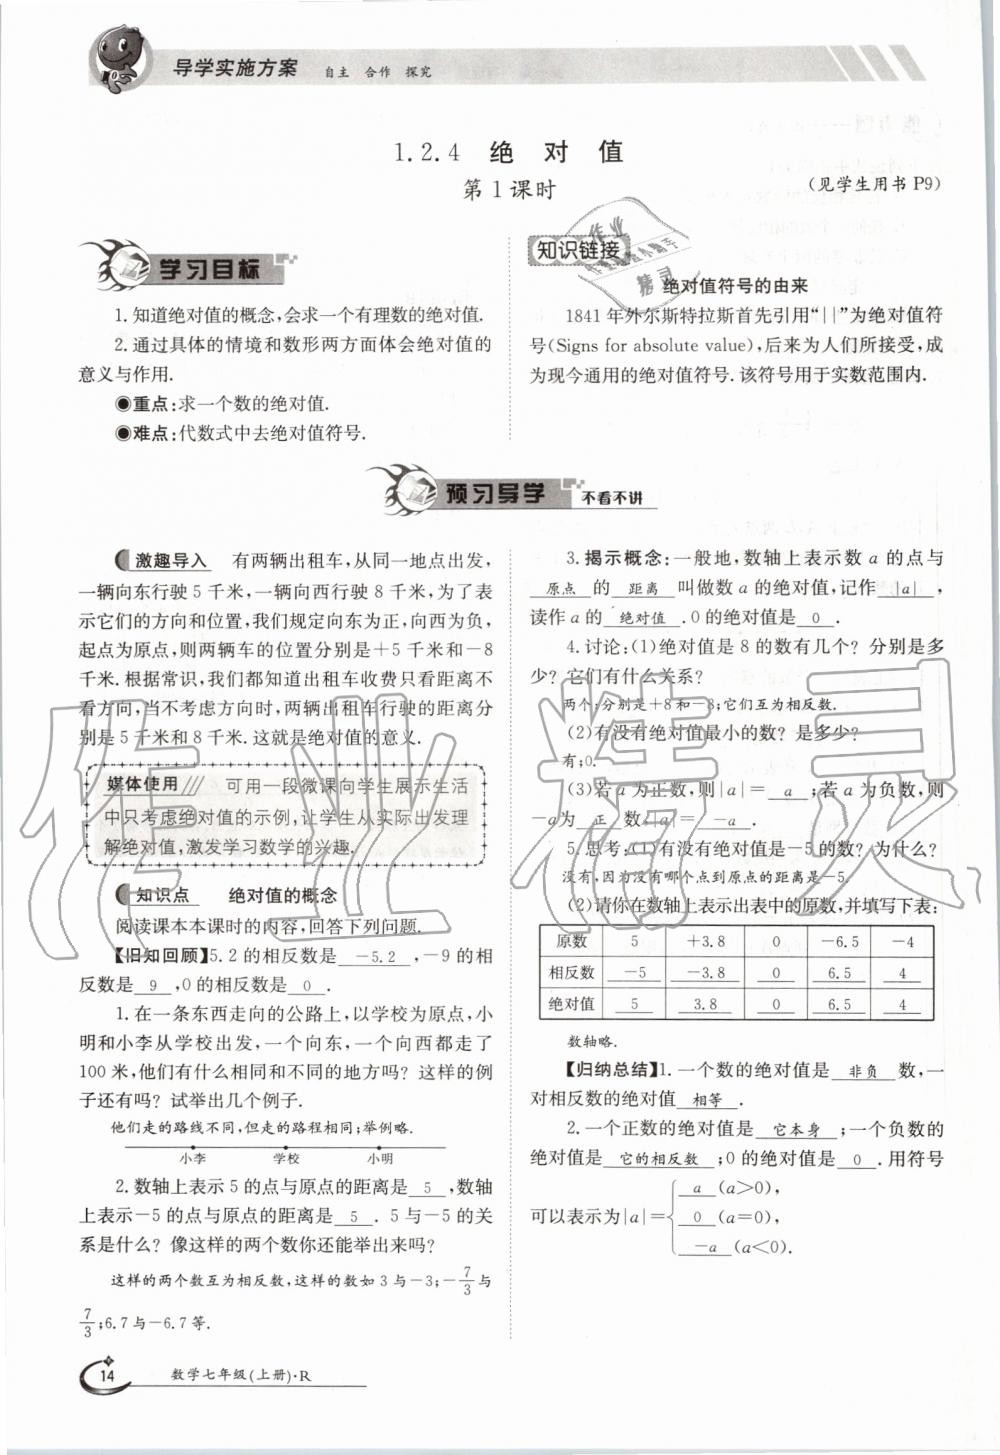 导学实施方案 自主 合作 探究
1.2.4 绝 对 值
第1课时
(见学生用书 P9)
学习目标
1.知道绝对值的概念,会求一个有理数的绝对值.
2.通过具体的情境和数形两方面体会绝对值的
意义与作用.
◉重点:求一个数的绝对值.
◉难点:代数式中去绝对值符号.
知识链接
绝对值符号的由来
1841 年外尔斯特拉斯首先引用“||”为绝对值符
号(Signs for absolute value),后来为人们所接受,成
为现今通用的绝对值符号.该符号用于实数范围内.
预习导学 不看不讲
激趣导入 有两辆出租车,从同一地点出发,
一辆向东行驶 5 千米,一辆向西行驶 8 千米,为了表
示它们的方向和位置,我们规定向东为正,向西为负,
起点为原点,则两辆车的位置分别是+5 千米和-8
千米.根据常识,我们都知道出租车收费只看距离不
看方向,当不考虑方向时,两辆出租车行驶的距离分
别是 5 千米和 8 千米.这就是绝对值的意义.
媒体使用 可用一段微课向学生展示生活
中只考虑绝对值的示例,让学生从实际出发理
解绝对值,激发学习数学的兴趣.
知识点 绝对值的概念
阅读课本本课时的内容,回答下列问题.
【旧知回顾】5.2 的相反数是 -5.2 ,-9 的相
反数是 9 ,0 的相反数是 0 .
1.在一条东西走向的公路上,以学校为原点,小
明和小李从学校出发,一个向东,一个向西都走了
100 米,他们有什么相同和不同的地方吗? 这样的例
子还有吗? 试举出几个例子.
他们走的路线不同,但走的路程相同;举例略.
小李 学校 小明
2.数轴上表示 5 的点与原点的距离是 5 ,数轴
上表示-5 的点与原点的距离是 5 .5 与-5 的关
系是什么? 像这样的两个数你还能举出来吗?
这样的两个数互为相反数,这样的数如 3 与-3;-7/3与
7/3;6.7 与-6.7 等.
3.揭示概念:一般地,数轴上表示数 a 的点与
原点 的 距离 叫做数 a 的绝对值,记作 |a| ,
读作 a 的 绝对值 .0 的绝对值是 0 .
4.讨论:(1)绝对值是 8 的数有几个? 分别是多
少? 它们有什么关系?
两个;分别是+8 和-8;它们互为相反数.
(2)有没有绝对值最小的数? 是多少?
有;0.
(3)若 a 为正数,则|a|= a ;若 a 为负数,则
-a 为 正 数,|a|= -a .
5.思考:(1)有没有绝对值是-5 的数? 为什么?
没有,因为没有哪个点到原点的距离是-5.
(2)请你在数轴上表示出表中的原数,并填写下表:
原数 5 +3.8 0 -6.5 -4
相反数 -5 -3.8 0 6.5 4
绝对值 5 3.8 0 6.5 4
数轴略.
【归纳总结】1.一个数的绝对值是 非负 数,一
对相反数的绝对值 相等 .
2.一个正数的绝对值是 它本身 ;一个负数的
绝对值是 它的相反数 ;0 的绝对值是 0 .用符号
可以表示为|a|={ a (a>0),
0 (a=0),
-a (a<0).
14 数学七年级(上册)·R
作业精灵